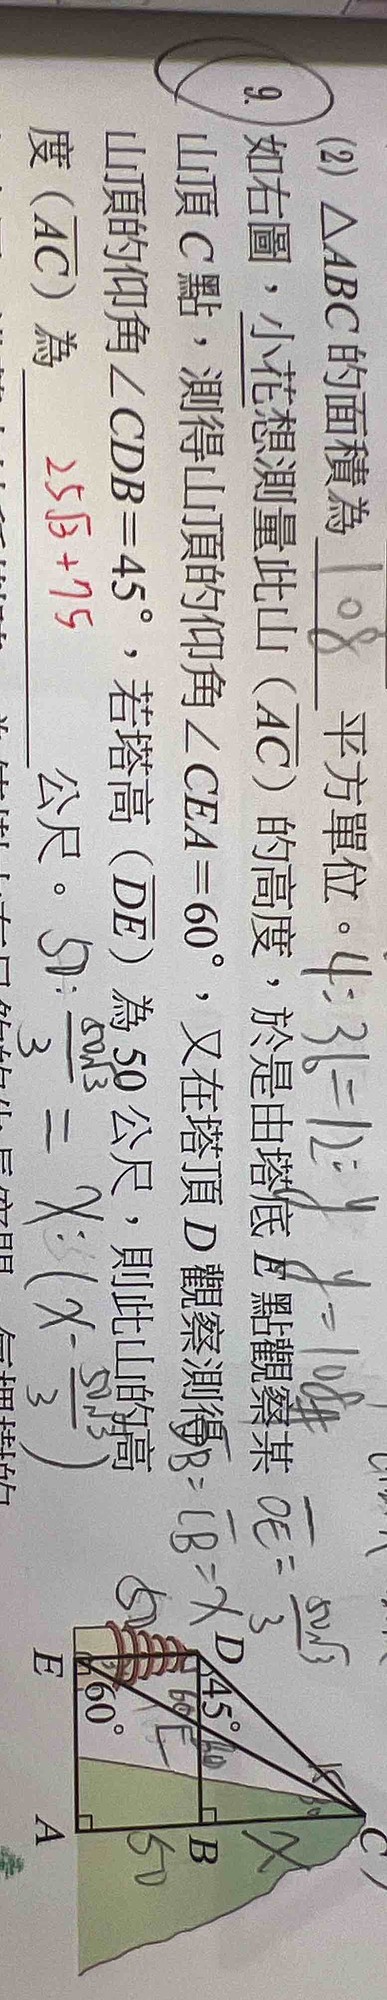 (2) △ABC 的面積為 108 平方單位。 4:36=12:y y=108#
9. 如右圖，小花想測量此山（AC）的高度，於是由塔底 E 點觀察某
山頂 C 點，測得山頂的仰角∠CEA=60°，又在塔頂 D 觀察測得
山頂的仰角∠CDB=45°，若塔高（DE）為 50 公尺，則此山的高
度（AC）為 25√3+75 公尺。
50:50√3/3 = x:(x-50√3/3)
OE=50√3/3
DB=CB=x
C
x
D 45° B
50 50
60°
E A